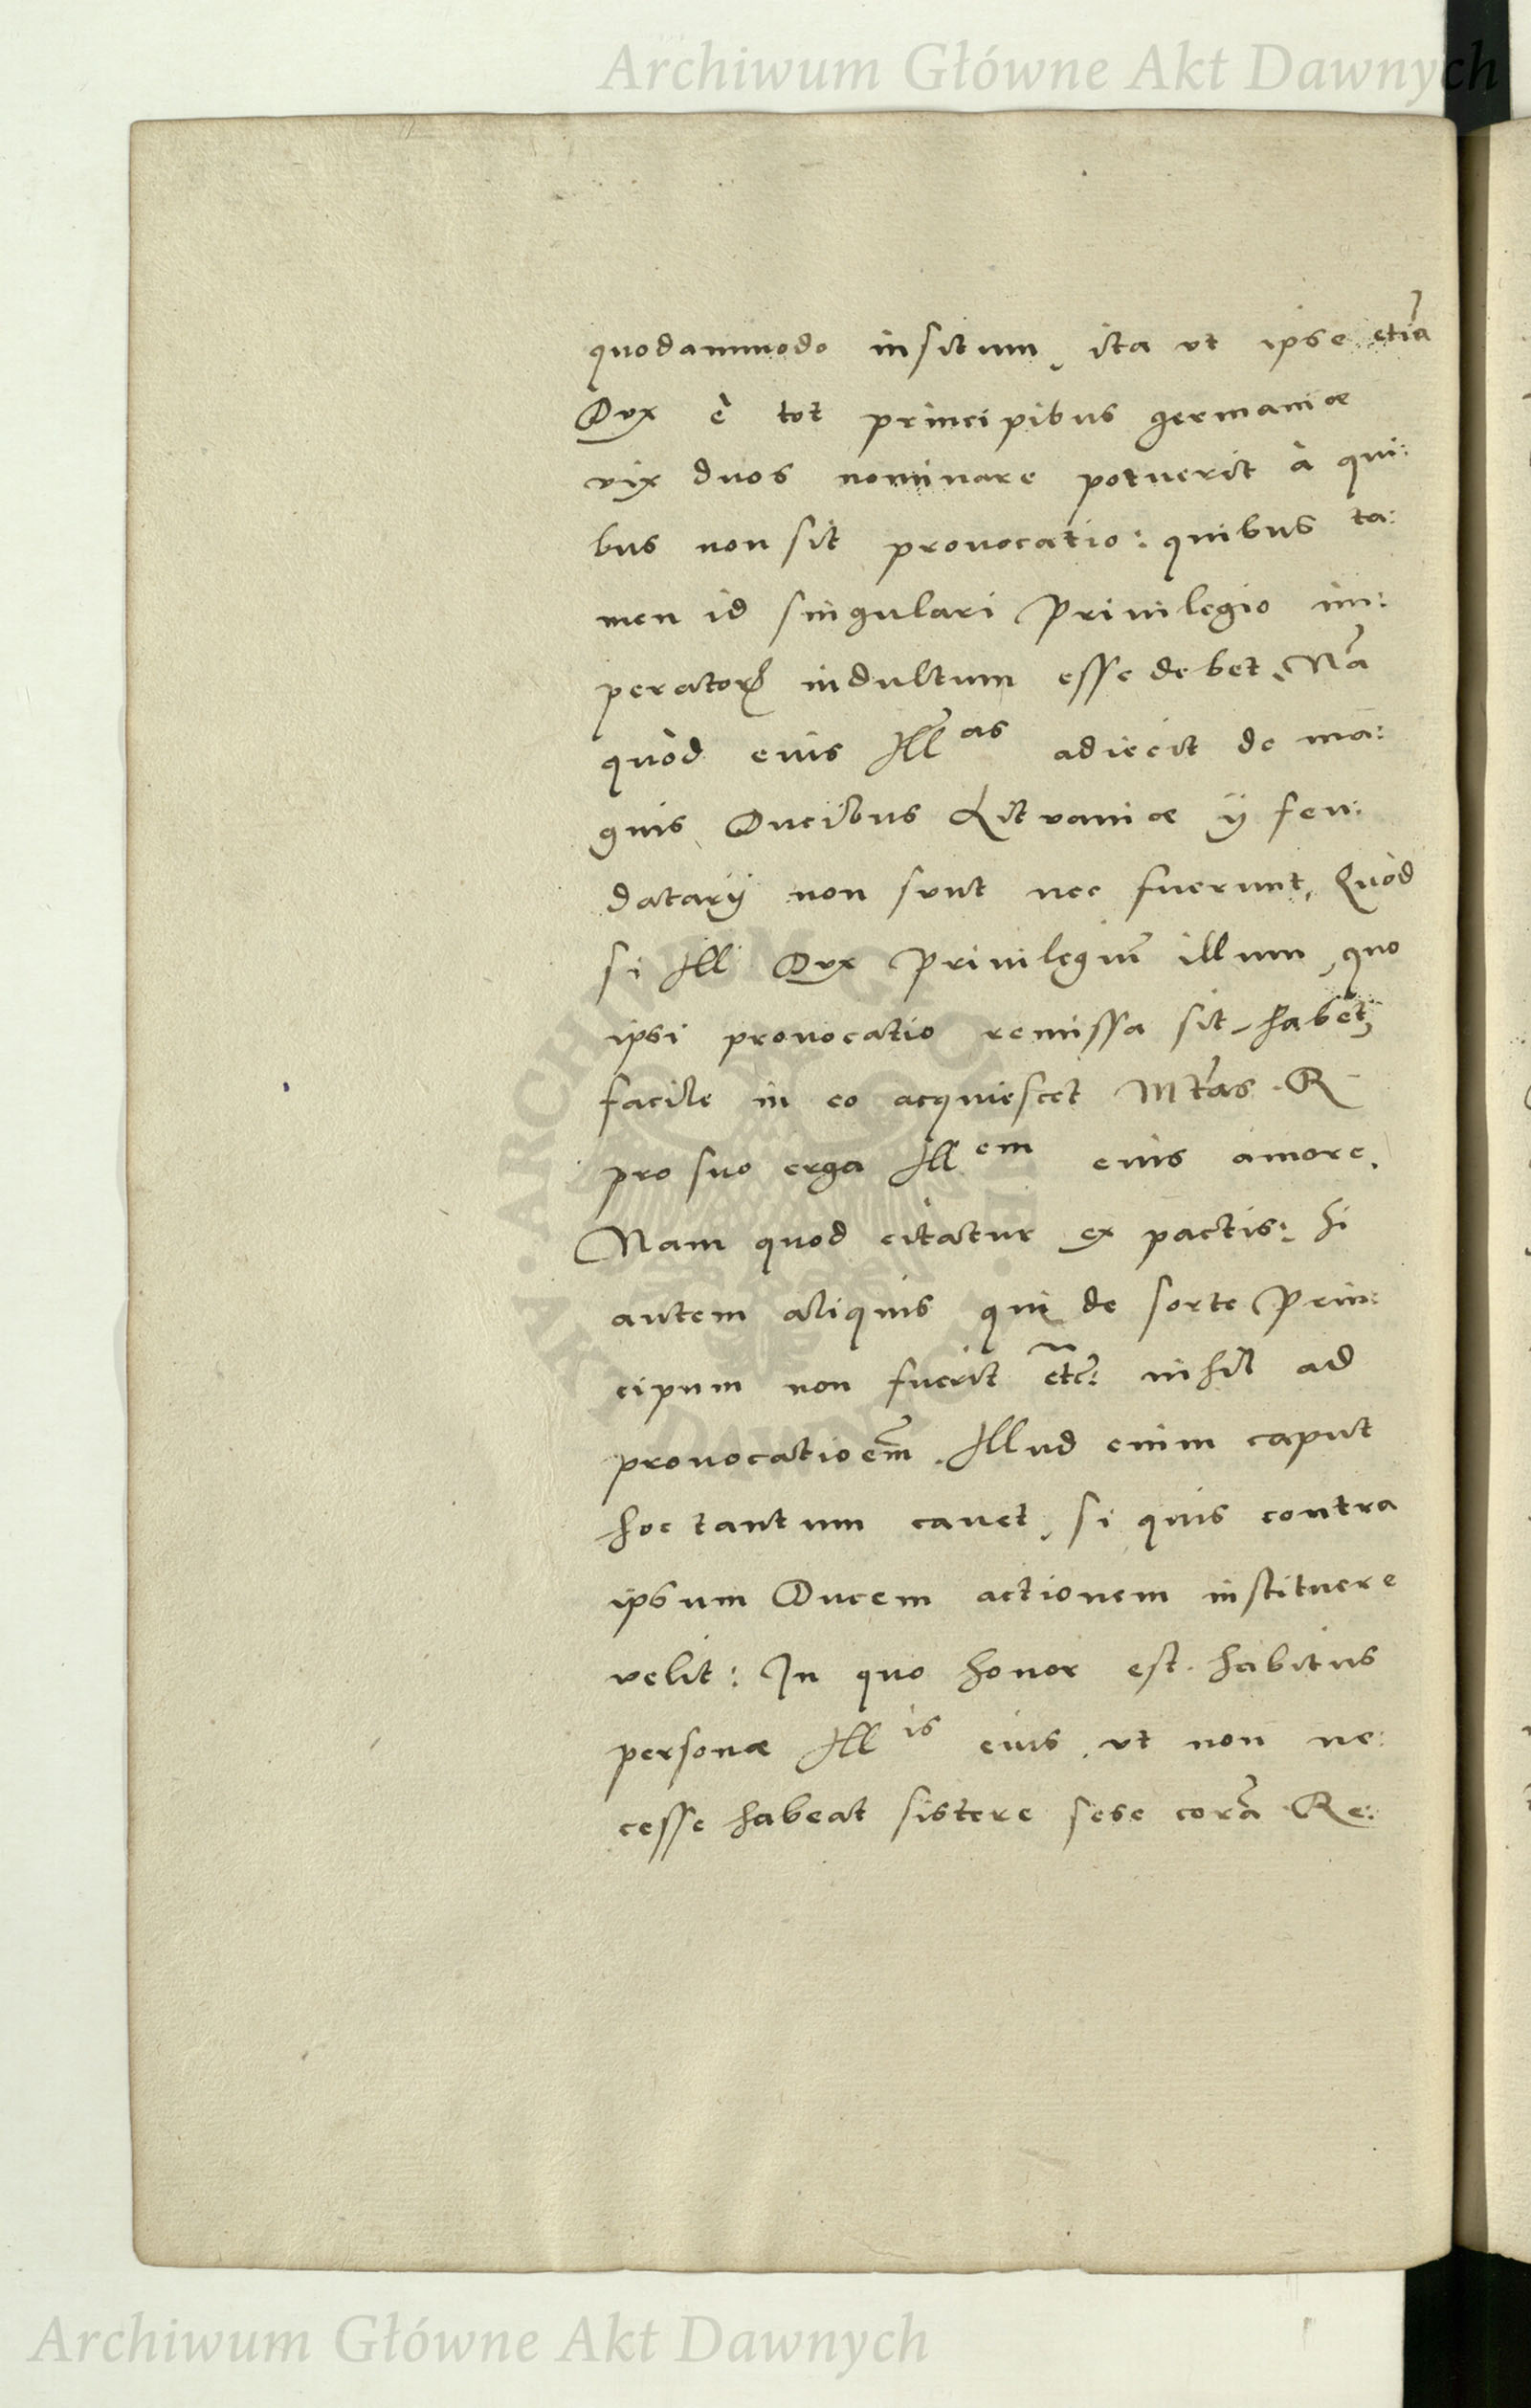 Archiwum Główne Akt Dawnych
quodammodo insitum, ita vt ipse etiã
Dux è tot principibus germaniæ
vix duos nominare potuerit à qui:
bus non sit prouocatio: quibus ta:
men id singulari Priuilegio im:
peratorꝭ indultum esse debet, Nã
quòd eius Ill^as adiecit de ma:
gnis Ducibus Lituaniæ ij feu:
datarij non sunt nec fuerunt, Quòd
si Ill Dux Priuilegiũ illum, quo
ipsi prouocatio remissa sit habet,
facile in eo acquiescet Mtãs R
pro suo erga Ill^em eius amore.
Nam quod citatur ex pactis: Si
autem aliquis qui de sorte Prin:
cipum non fuerit etc̃: nihil ad
prouocatioẽm. Illud enim caput
hoc tantum cauet, si quis contra
ipsum Ducem actionem instituere
velit: In quo honor est habitus
personæ Ill^is eius, vt non ne:
cesse habeat sistere sese corã Re:
ARCHIWUM GŁÓWNE
AKT DAWNYCH
Archiwum Główne Akt Dawnych